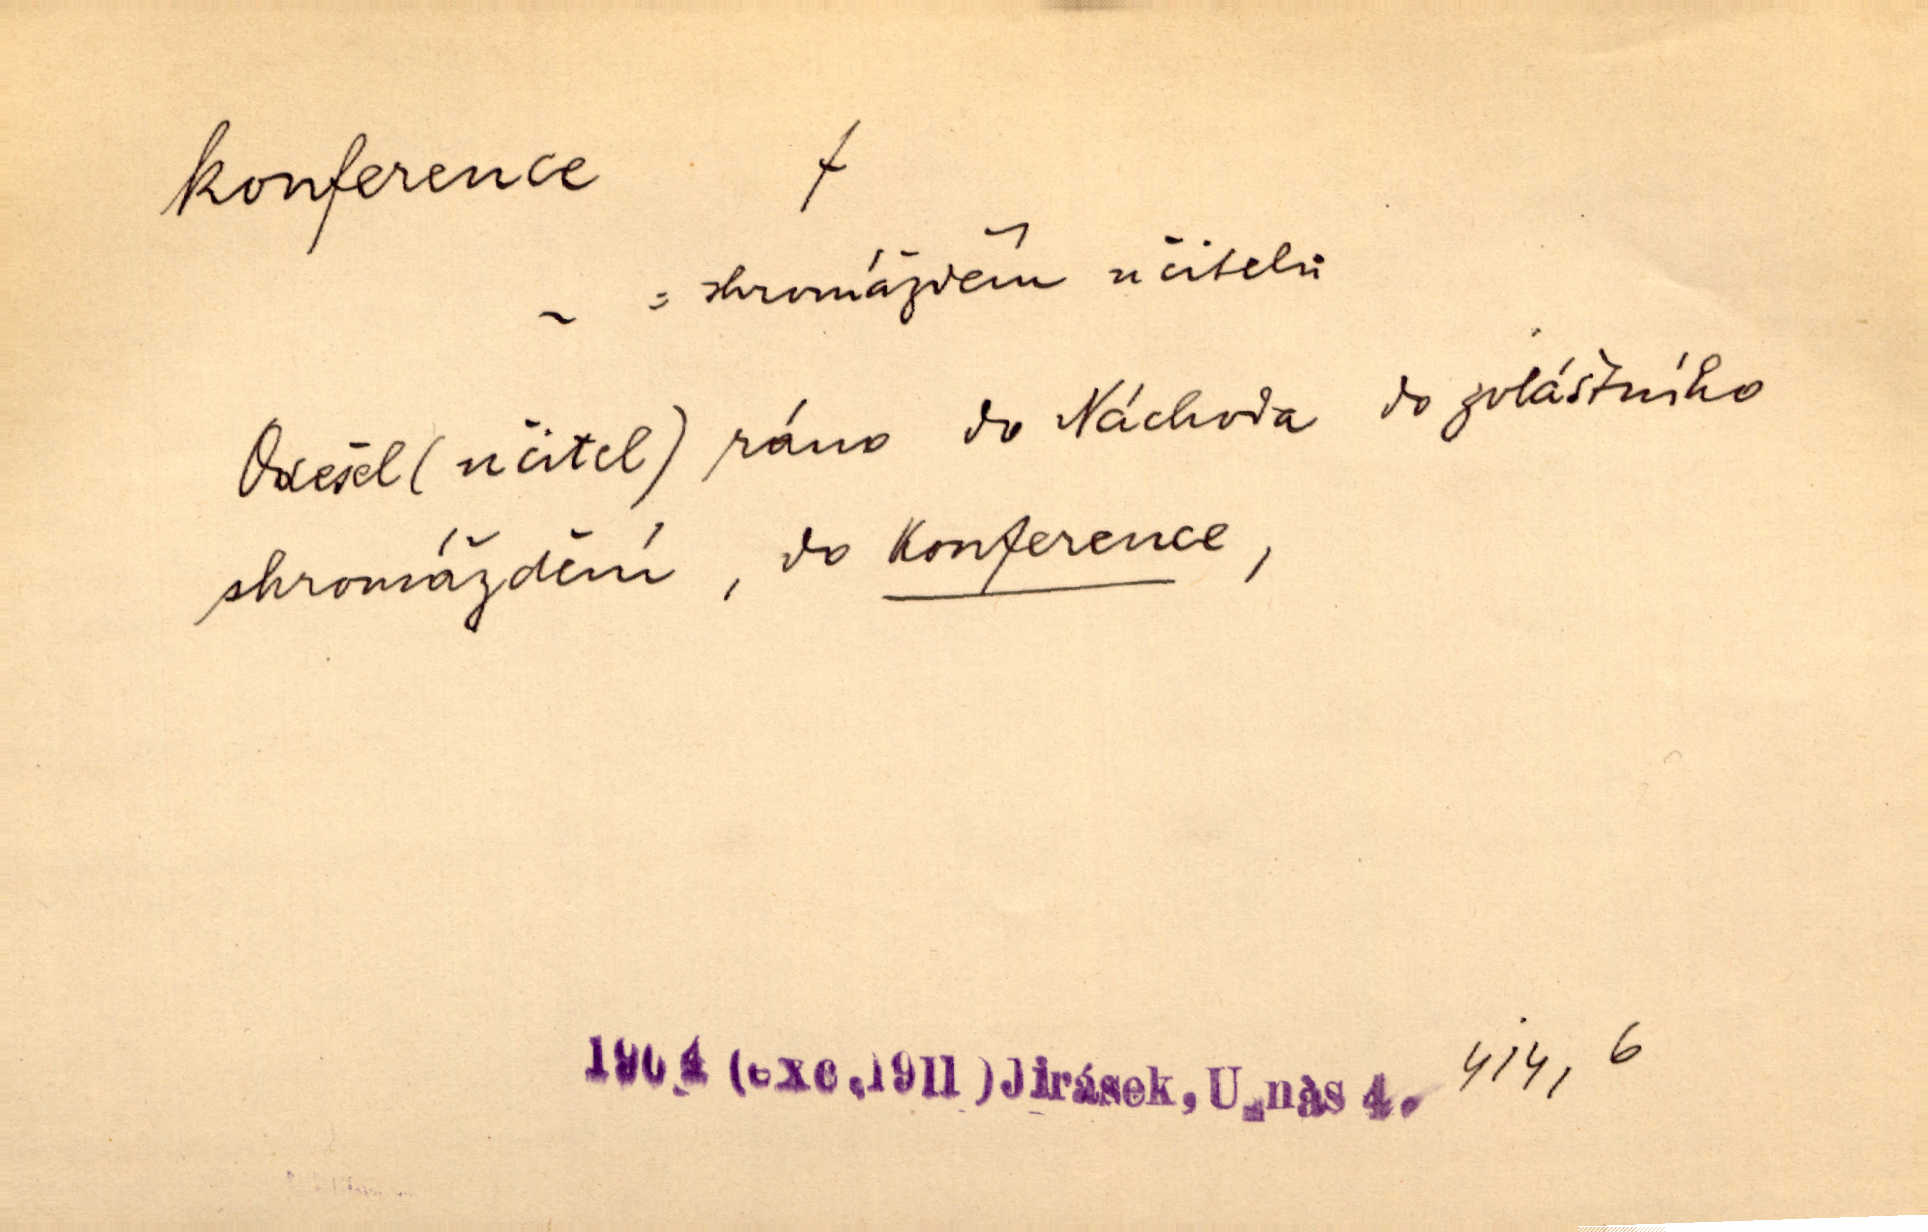 konference f
~ = shromáždění učitelů
Odešel (učitel) ráno do Náchoda do zvláštního
shromáždění, do konference,
1904 (exc. 1911) Jirásek, U nás 4. 414, 6